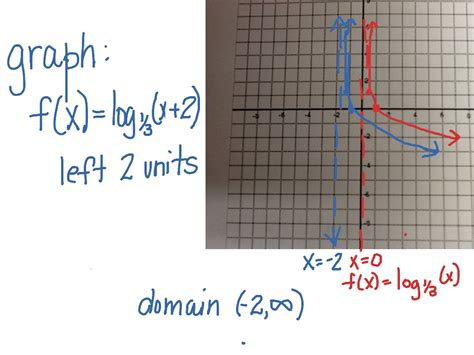 graph:
f(x)=log⅓(x+2)
left 2 units
x=-2 x=0
f(x)=log⅓(x)
domain (-2,∞)